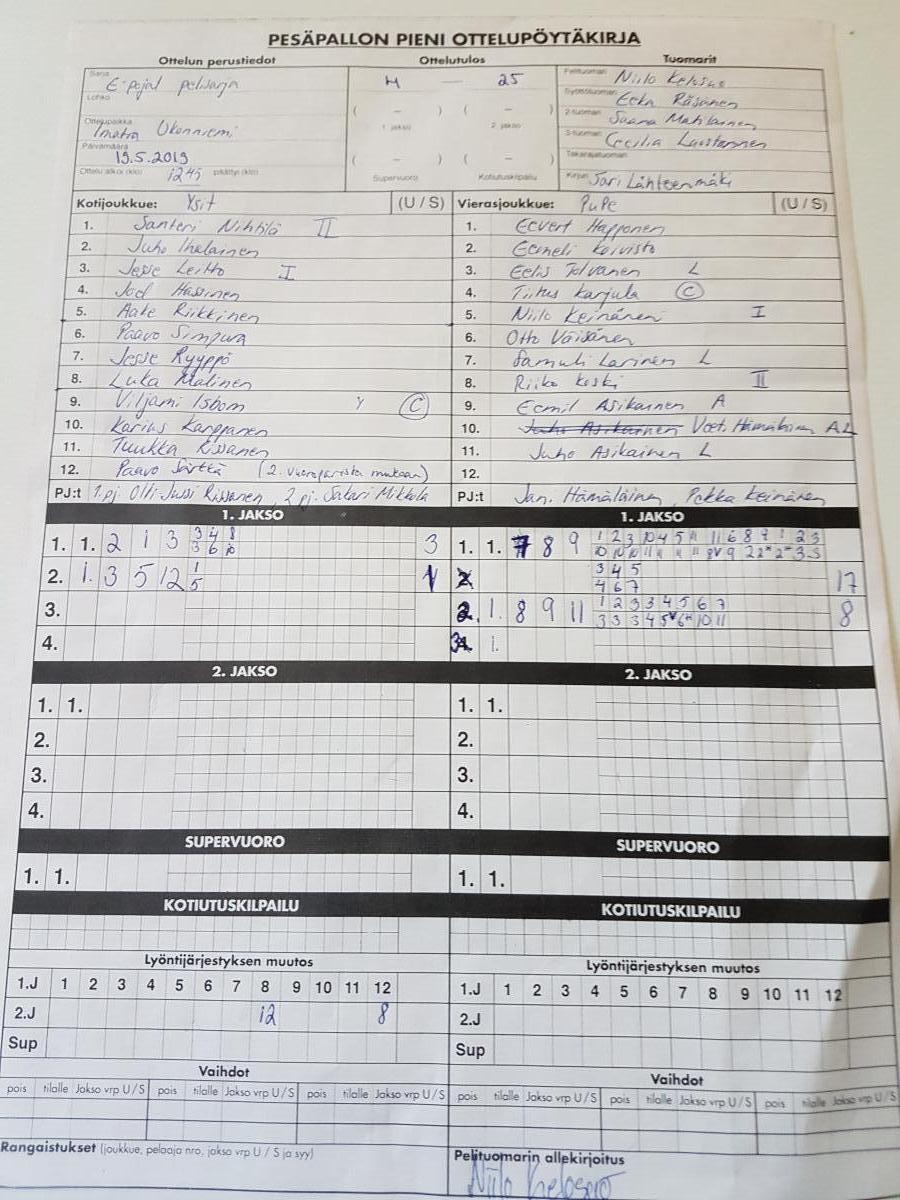 PESÄPALLON PIENI OTTELUPÖYTÄKIRJA
Ottelun perustiedot Ottelutulos Tuomarit
Sarja E-pojat pelisarja 4 — 25 Pelituomari Niilo
Lohko Syöttötuomari Eeka Räsänen
( – ) ( – ) 2-tuomari Saana Mahlainen
Ottelupaikka Imatra Ukonniemi 1. jakso 2. jakso 3-tuomari Cecilia
Päivämäärä 19.5.2019 Takarajatuomari
( – ) ( – )
Ottelu alkoi (klo) 1245 päättyi (klo) Supervuoro Kotiutuskilpailu Kirjuri Jari Lähteenmäki
Kotijoukkue: Ysit (U / S) Vierasjoukkue: PuPe (U / S)
1. Santeri Nihtilä II 1. Eevert Happonen
2. Juho Ihalainen 2. Eemeli Koivisto
3. Jesse Leitto I 3. Eelis Tolvanen L
4. Joel Hassinen 4. Tiitus Karjula C
5. Aate Riikkinen 5. Niilo Keinänen I
6. Paavo Simpura 6. Otto Väisänen
7. Jesse Ryyppö 7. Samuli Larinen L
8. Luka Malinen 8. Riiko Koski II
9. Viljami Isbom Y C 9. Eemil Asikainen A
10. Karius Kamppanen 10. Juho Asikainen Veet. Hämäläinen AL
11. Tuukka Rissanen 11. Juho Asikainen L
12. Paavo Särttä (2. vuoroparista mukaan) 12.
PJ:t 1.pj. Olli-Jussi Rissanen, 2 pj. Sakari Mikkola PJ:t Jan. Hämäläinen, Pekka Keinänen
1. JAKSO 1. JAKSO
1. 1. 2 1 3 3 4 8 3 1. 1. 7 8 9 1 2 3 10 4 5 11 11 6 8 9 1 2 3
3 6 10 10 10 10 11 11 11 11 8v 9 2 2* 2* 3 3
2. 1. 3 5 12 1 1 2. 3 4 5 17
5 4 6 7
3. 2. 1. 8 9 11 1 2 3 3 4 5 6 7 8
3 3 3 4 5 6 10 11
4. 3. 1.
2. JAKSO 2. JAKSO
1. 1. 1. 1.
2. 2.
3. 3.
4. 4.
SUPERVUORO SUPERVUORO
1. 1. 1. 1.
KOTIUTUSKILPAILU KOTIUTUSKILPAILU
Lyöntijärjestyksen muutos Lyöntijärjestyksen muutos
1.J 1 2 3 4 5 6 7 8 9 10 11 12 1.J 1 2 3 4 5 6 7 8 9 10 11 12
2.J 12 8 2.J
Sup Sup
Vaihdot Vaihdot
pois tilalle Jakso vrp U / S pois tilalle Jakso vrp U / S pois tilalle Jakso vrp U / S pois tilalle Jakso vrp U / S pois tilalle Jakso vrp U / S pois tilalle Jakso vrp U / S
Rangaistukset (joukkue, pelaaja nro, jakso vrp U / S ja syy) Pelituomarin allekirjoitus
Niilo